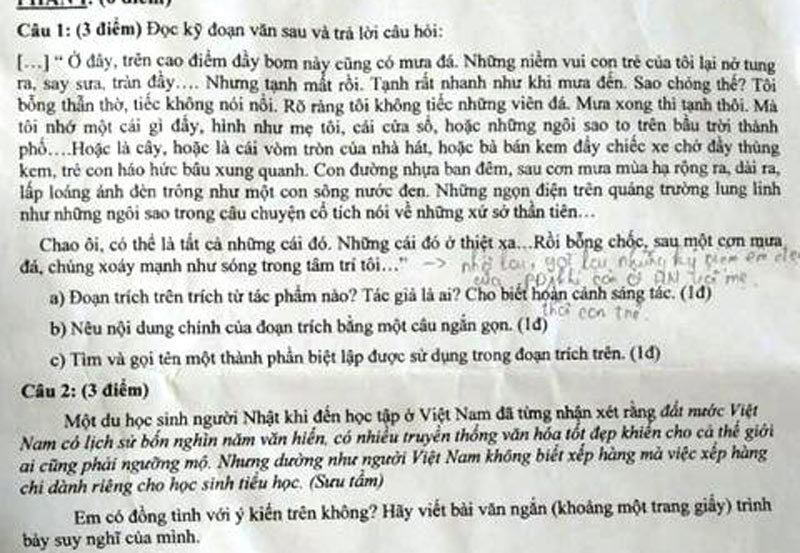 Câu 1: (3 điểm) Đọc kỹ đoạn văn sau và trả lời câu hỏi:
[…] “ Ở đây, trên cao điểm đầy bom này cũng có mưa đá. Những niềm vui con trẻ của tôi lại nở tung
ra, say sưa, tràn đầy…. Nhưng tạnh mất rồi. Tạnh rất nhanh như khi mưa đến. Sao chóng thế? Tôi
bỗng thẫn thờ, tiếc không nói nổi. Rõ ràng tôi không tiếc những viên đá. Mưa xong thì tạnh thôi. Mà
tôi nhớ một cái gì đấy, hình như mẹ tôi, cái cửa sổ, hoặc những ngôi sao to trên bầu trời thành
phố….Hoặc là cây, hoặc là cái vòm tròn của nhà hát, hoặc bà bán kem đẩy chiếc xe chở đầy thùng
kem, trẻ con háo hức bâu xung quanh. Con đường nhựa ban đêm, sau cơn mưa mùa hạ rộng ra, dài ra,
lấp loáng ánh đèn trông như một con sông nước đen. Những ngọn điện trên quảng trường lung linh
như những ngôi sao trong câu chuyện cổ tích nói về những xứ sở thần tiên…
Chao ôi, có thể là tất cả những cái đó. Những cái đó ở thiệt xa…Rồi bỗng chốc, sau một cơn mưa
đá, chúng xoáy mạnh như sóng trong tâm trí tôi…” -> nhớ lại, gợi lại những kỷ niệm êm
của PĐ khi còn ở HN với mẹ
a) Đoạn trích trên trích từ tác phẩm nào? Tác giả là ai? Cho biết hoàn cảnh sáng tác. (1đ)
thời con trẻ.
b) Nêu nội dung chính của đoạn trích bằng một câu ngắn gọn. (1đ)
c) Tìm và gọi tên một thành phần biệt lập được sử dụng trong đoạn trích trên. (1đ)
Câu 2: (3 điểm)
Một du học sinh người Nhật khi đến học tập ở Việt Nam đã từng nhận xét rằng đất nước Việt
Nam có lịch sử bốn nghìn năm văn hiến, có nhiều truyền thống văn hóa tốt đẹp khiến cho cả thế giới
ai cũng phải ngưỡng mộ. Nhưng dường như người Việt Nam không biết xếp hàng mà việc xếp hàng
chỉ dành riêng cho học sinh tiểu học. (Sưu tầm)
Em có đồng tình với ý kiến trên không? Hãy viết bài văn ngắn (khoảng một trang giấy) trình
bày suy nghĩ của mình.